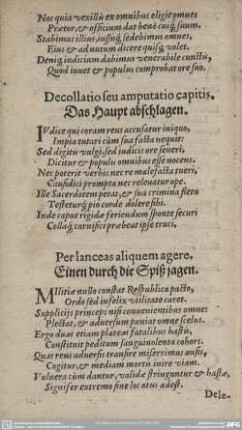 Nos quia vexillũ ex omnibus eligit omnes
Prætor, & officium dat bene cuiq; suum.
Stabimus illius, iustiq; sedebimus omnes,
Eius & ad nutum dicere quisq; volet.
Deniq; iudicium dabimus venerabile cunctũ,
Quod iuuet & populus comprobat ore suo.
Decollatio seu amputatio capitis.
Das Haupt abschlagen.
IVdice qui coram reus accusatur iniquo,
Impia tutari cùm sua facta nequit:
Sed digitu vulgi, sed iudicis ore seueri,
Dicitur & populi omnibus esse nocens.
Nec poterit verbis nec re malefacta tueri,
Causidici prompta nec releuatur ope.
Ille Sacerdotem petat, & sua crimina fletu
Testeturq; pio corde dolere sibi.
Inde caput rigidè feriendum sponte securi
Collaq; carnifici præbeat ipse truci.
Per lanceas aliquem agere,
Einen durch die Spiß jagen.
MIlitiæ nullo constat Respublica pacto,
Ordo sed infelix vtilitate caret.
Supplicijs princeps nisi conuenientibus omnes
Plectat, & aduersum puniat omne scelus.
Ergo duas etiam plateas fatalibus hastis,
Constituit peditum sanguinolenta cohors.
Quas reus aduersis transire miserrimus ausis,
Cogitur, & mediam mortis inire viam.
Vulnera cùm dantur, validè stringuntur & hastæ,
Signifer extremo fine locatus adest.
Dele-